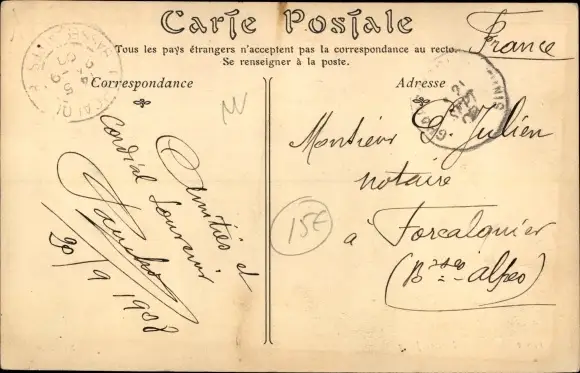 Carte Postale
Tous les pays étrangers n'acceptent pas la correspondance au recto.
Se renseigner à la poste.
Correspondance
Adresse
France
Amitiés et
Cordial Souvenir
20/9/1908
15€
21
SEPT
Monsieur E. Julien
notaire
à Forcalquier
(Bses alpes)